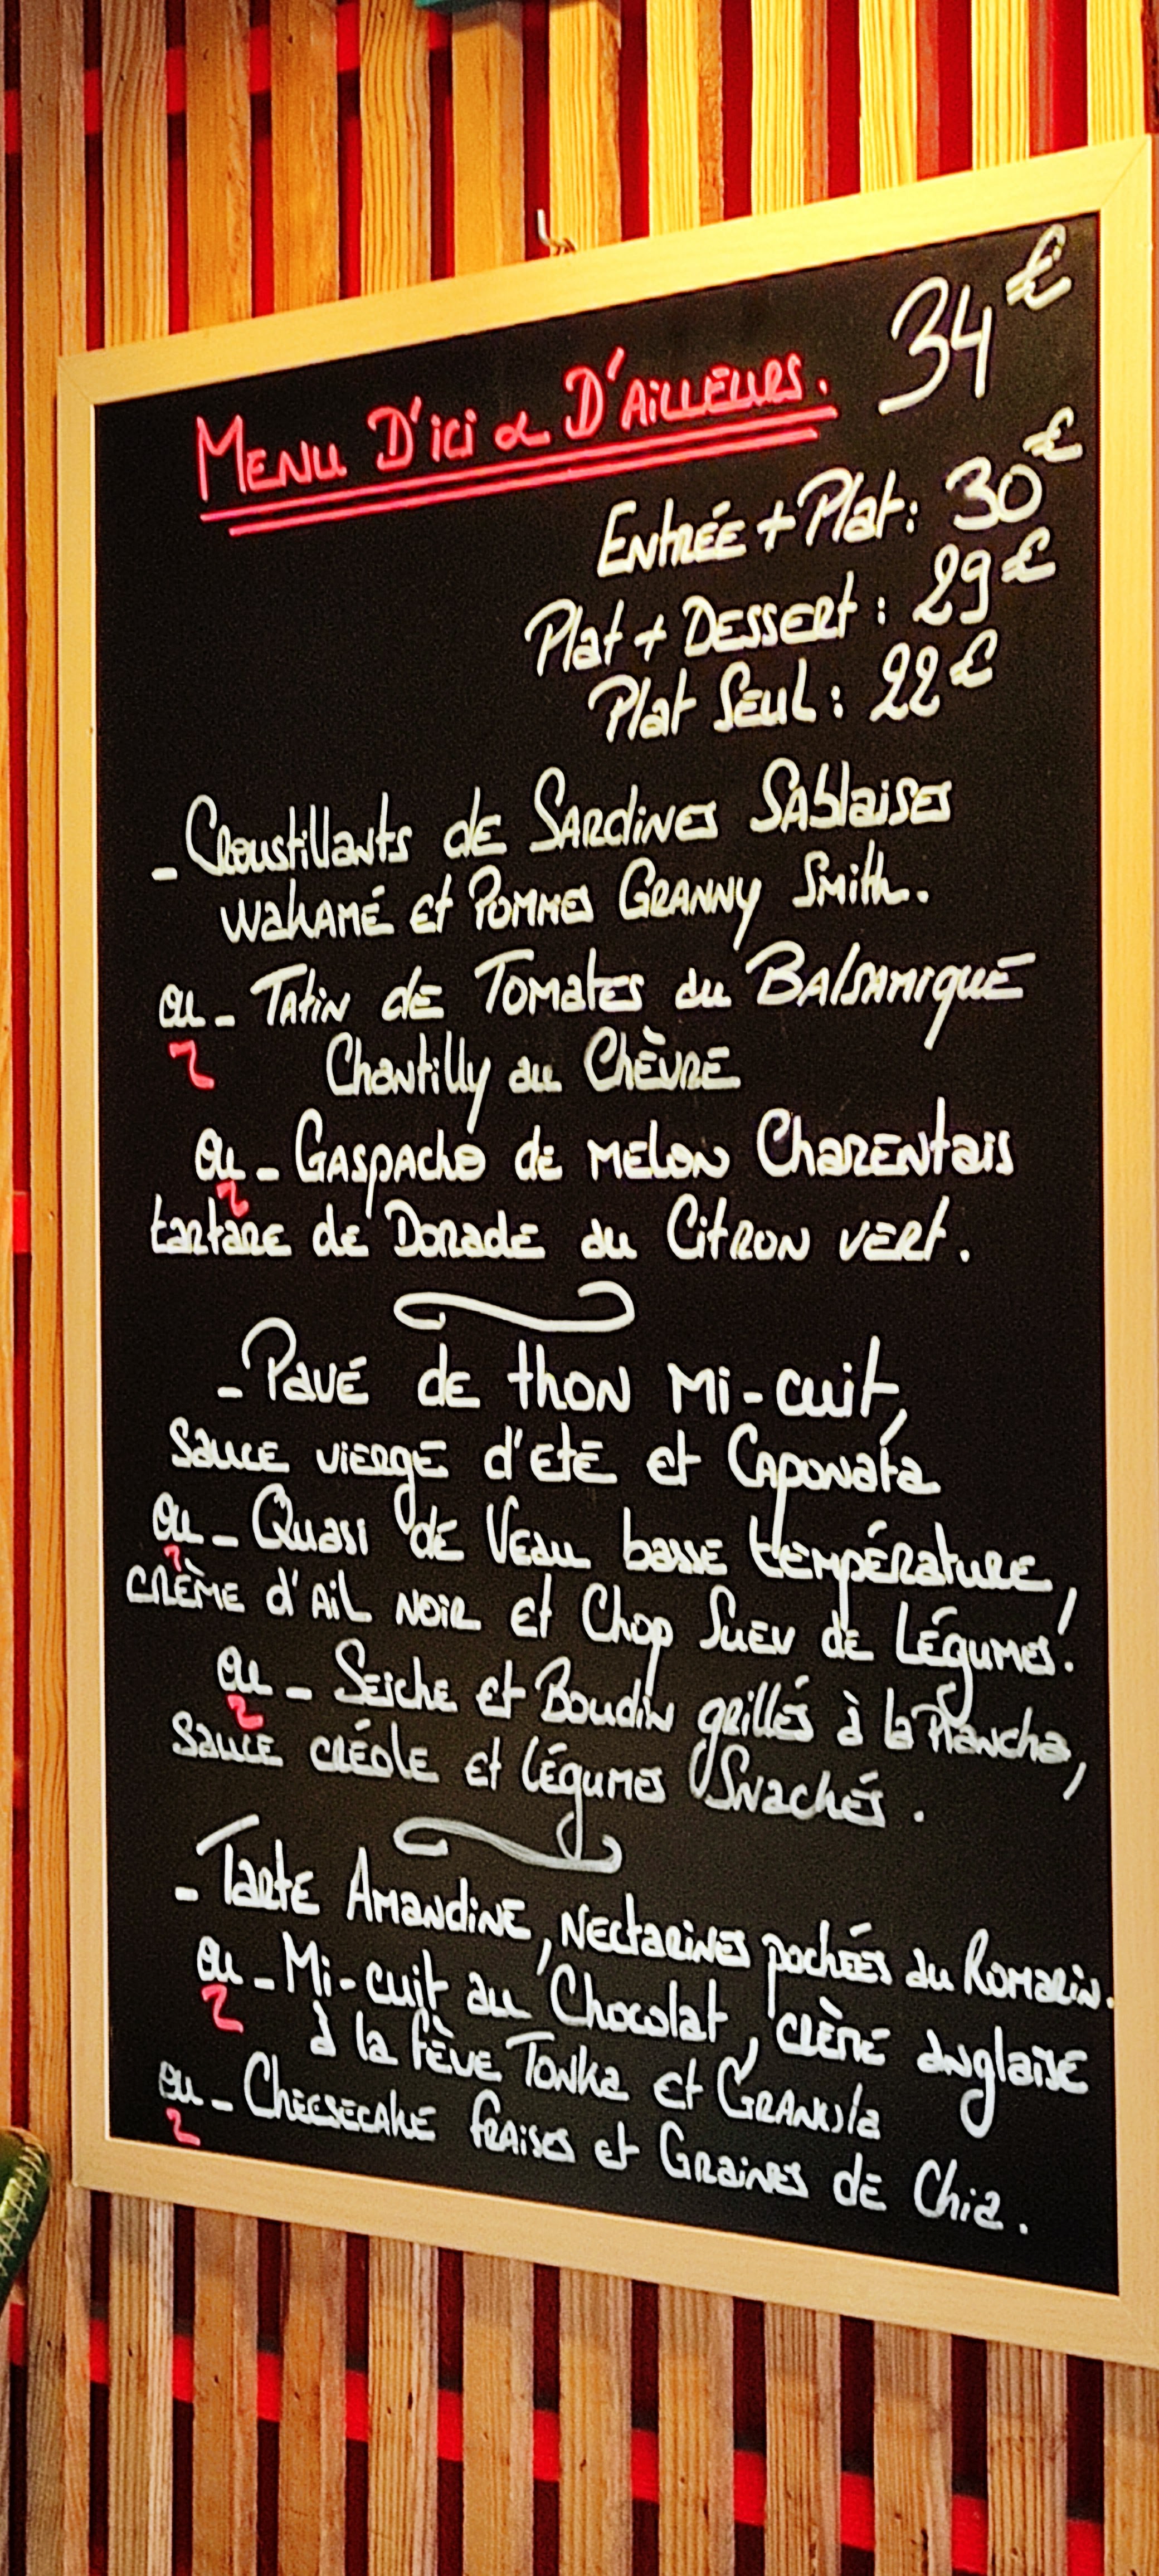 MENU D'ici & D'AiLLEURS. 34€
ENTRÉE + Plat: 30€
Plat + DESSERT: 29€
Plat SEUL: 22€
- Croustillants de SARDINES SAblaises
WAKAMÉ et POMMES GRANNY Smith.
ou - TATIN de TOMATES au BALSAMIQUE
Chantilly au CHÈVRE
ou - GASPACHO de MELON CHARENTAIS
tartare de DORADE au CITRON VERT.
- PAVÉ de thON Mi-cuit,
SAUCE VIERGE d'ÉTÉ et CAPONATA
ou - QUASI de VEAU basse tEMPÉRATURE,
CRÈME d'AiL NOIR et Chop SUEY de LÉGUMES.
ou - SEICHE et Boudin grillés à la Plancha,
SAUCE CRÉOLE et LÉGUMES SNACHÉS.
- TARTE AMANDINE, NECTARINES pochées au ROMARIN.
ou - Mi-cuit au Chocolat, CRÈME ANGLAISE
à la FÈVE TONKA et GRANOLA
ou - CHEESECAKE FRAISES et GRAINES de Chia.